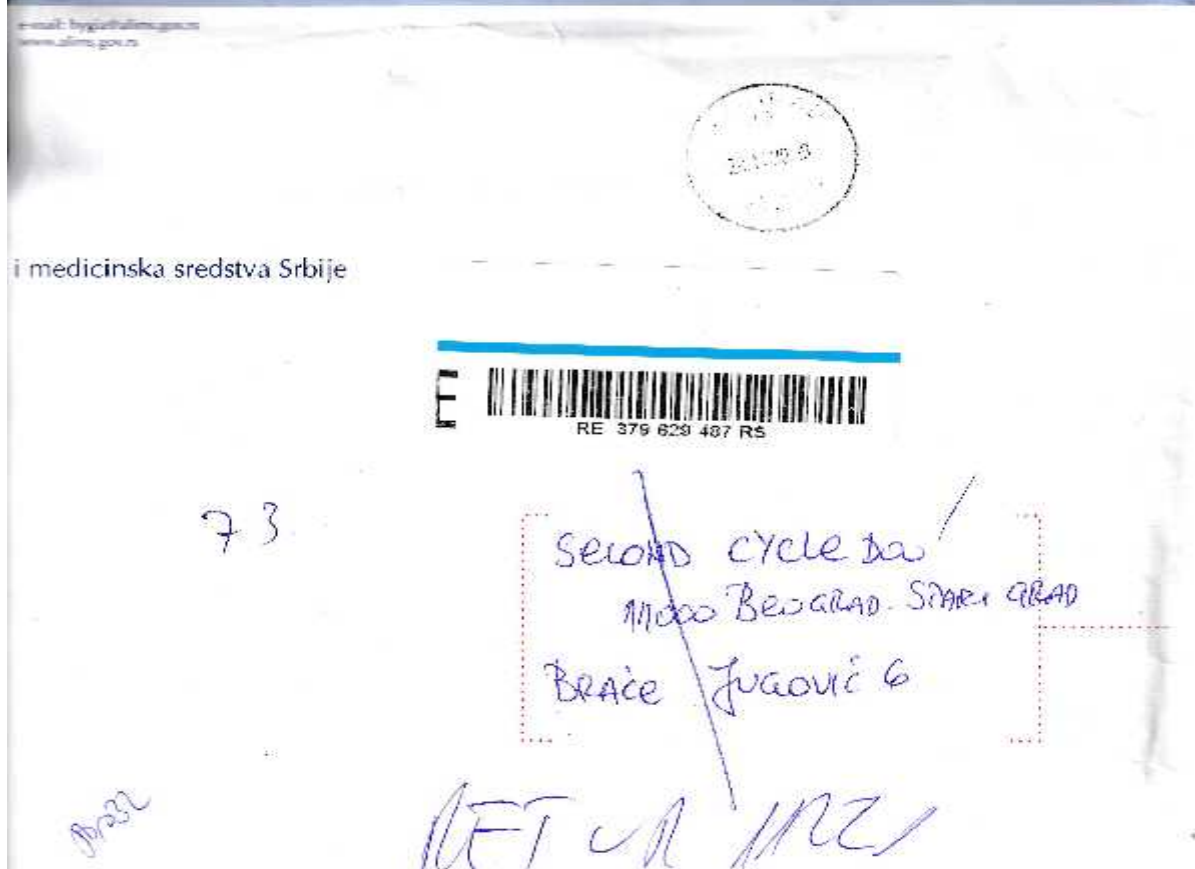 e-mail: hygia@alims.gov.rs
www.alims.gov.rs
i medicinska sredstva Srbije
E
RE 379 629 487 RS
73
SECOND CYCLE DOO
11000 BEOGRAD-STARI GRAD
BRAĆE JUGOVIĆ 6
RETUR